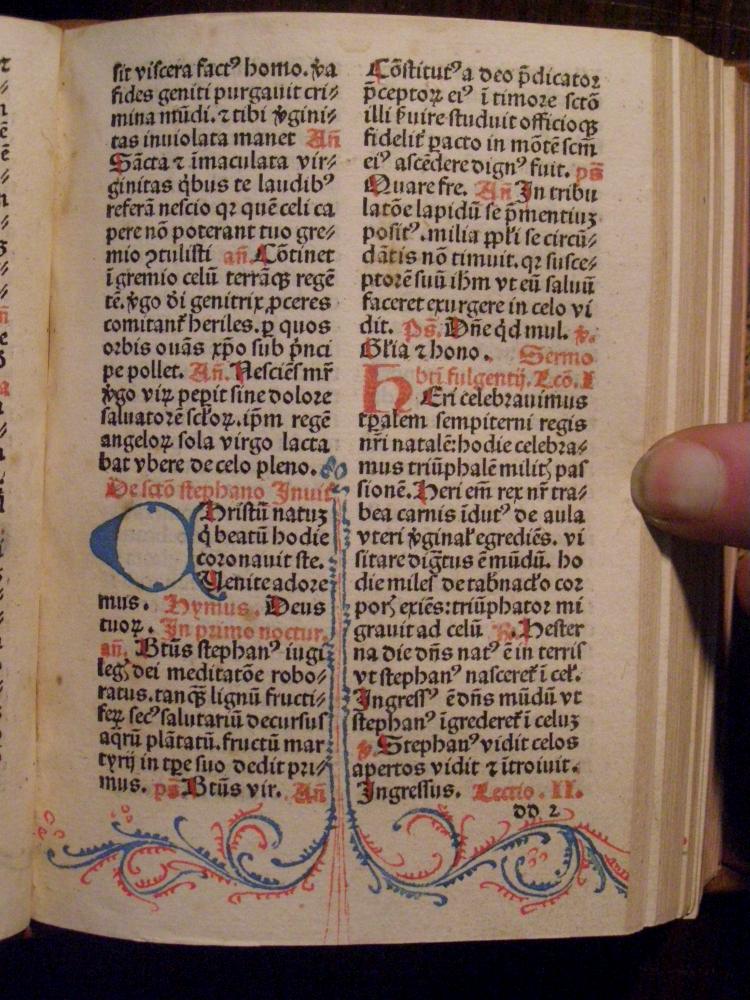 sit viscera factꝰ homo. ꝟa
fides geniti purgauit cri⸗
mina mūdi. ⁊ tibi ꝟgini⸗
tas inuiolata manet Añ
Sācta ⁊ īmaculata vir⸗
ginitas q̇bus te laudibꝰ
referā nescio qꝛ quē celi ca
pere nō poterant tuo gre⸗
mio ꝯtulisti añ. Cōtinet
ī gremio celū terrāqꝫ regē
tē. ꝟgo di genitrix ꝓceres
comitant᷑ heriles. ꝑ quos
orbis ouās xp̄o sub p̄nci
pe pollet. Añ. Nesciēs mr̄
ꝟgo virꝝ peꝑit sine dolore
saluatorē scl̄oꝝ. ip̄m regē
angeloꝝ sola virgo lacta
bat vbere de celo pleno.
De sct̄o stephano Inuit
Christū natuꝫ
q̇ beatū hodie
coronauit ste.
Uenite adore
mus. Hymus. Deus
tuoꝝ. In primo noctur.
añ. Btūs stephanꝰ iugi
legꝭ dei meditatōe robo⸗
ratus. tanqꝫ̄ lignū fructi⸗
feꝝ secꝰ salutariū decursus
aqrū plātatū. fructū mar
tyrij in tp̄e suo dedit pri⸗
mus. ps̄ Btūs vir. Añ
Cōstitutꝰ a deo p̄dicator
p̄ceptoꝝ eiꝰ ī timore sctō
illi ẜuire studuit officioqꝫ
fidelit᷑ ꝑacto in mōtē scm̄
eiꝰ ascēdere dignꝰ fuit. ps̄
Quare fre. Añ In tribu
latōe lapidū se p̄mentiuꝫ
positꝰ. milia ppl̄i se circū⸗
dātis nō timuit. qꝛ susce⸗
ptorē suū ih̄m vt eū saluū
faceret exurgere in celo vi
dit. Ps̄. Dn̄e q̇d mul. ꝟ.
Gl̄ia ⁊ hono. Sermo
bti fulgentij. Lcō. I
HEri celebrauimus
tꝑalem sempiterni regis
nr̄i natalē: hodie celebra⸗
mus triūphalē militꝭ pas
sionē. Heri em̄ rex nr̄ tra⸗
bea carnis īdutꝰ de aula
vteri ꝟginal᷑ egrediēs. vi
sitare dig̃tus ē mūdū. ho
die miles de tab̄nacl̄o cor
porꝭ exiēs: triūphator mi
grauit ad celū ꝶ. Hester
na die dn̄s natꝰ ē in terris
vt stephanꝰ nasceret᷑ ī cel᷑.
Ingressꝰ ē dn̄s mūdū vt
stephanꝰ īgrederet᷑ ī celuꝫ
ꝟ. Stephanꝰ vidit celos
apertos vidit ⁊ ītroiuit.
Ingressus. Lectio. II.
dd 2